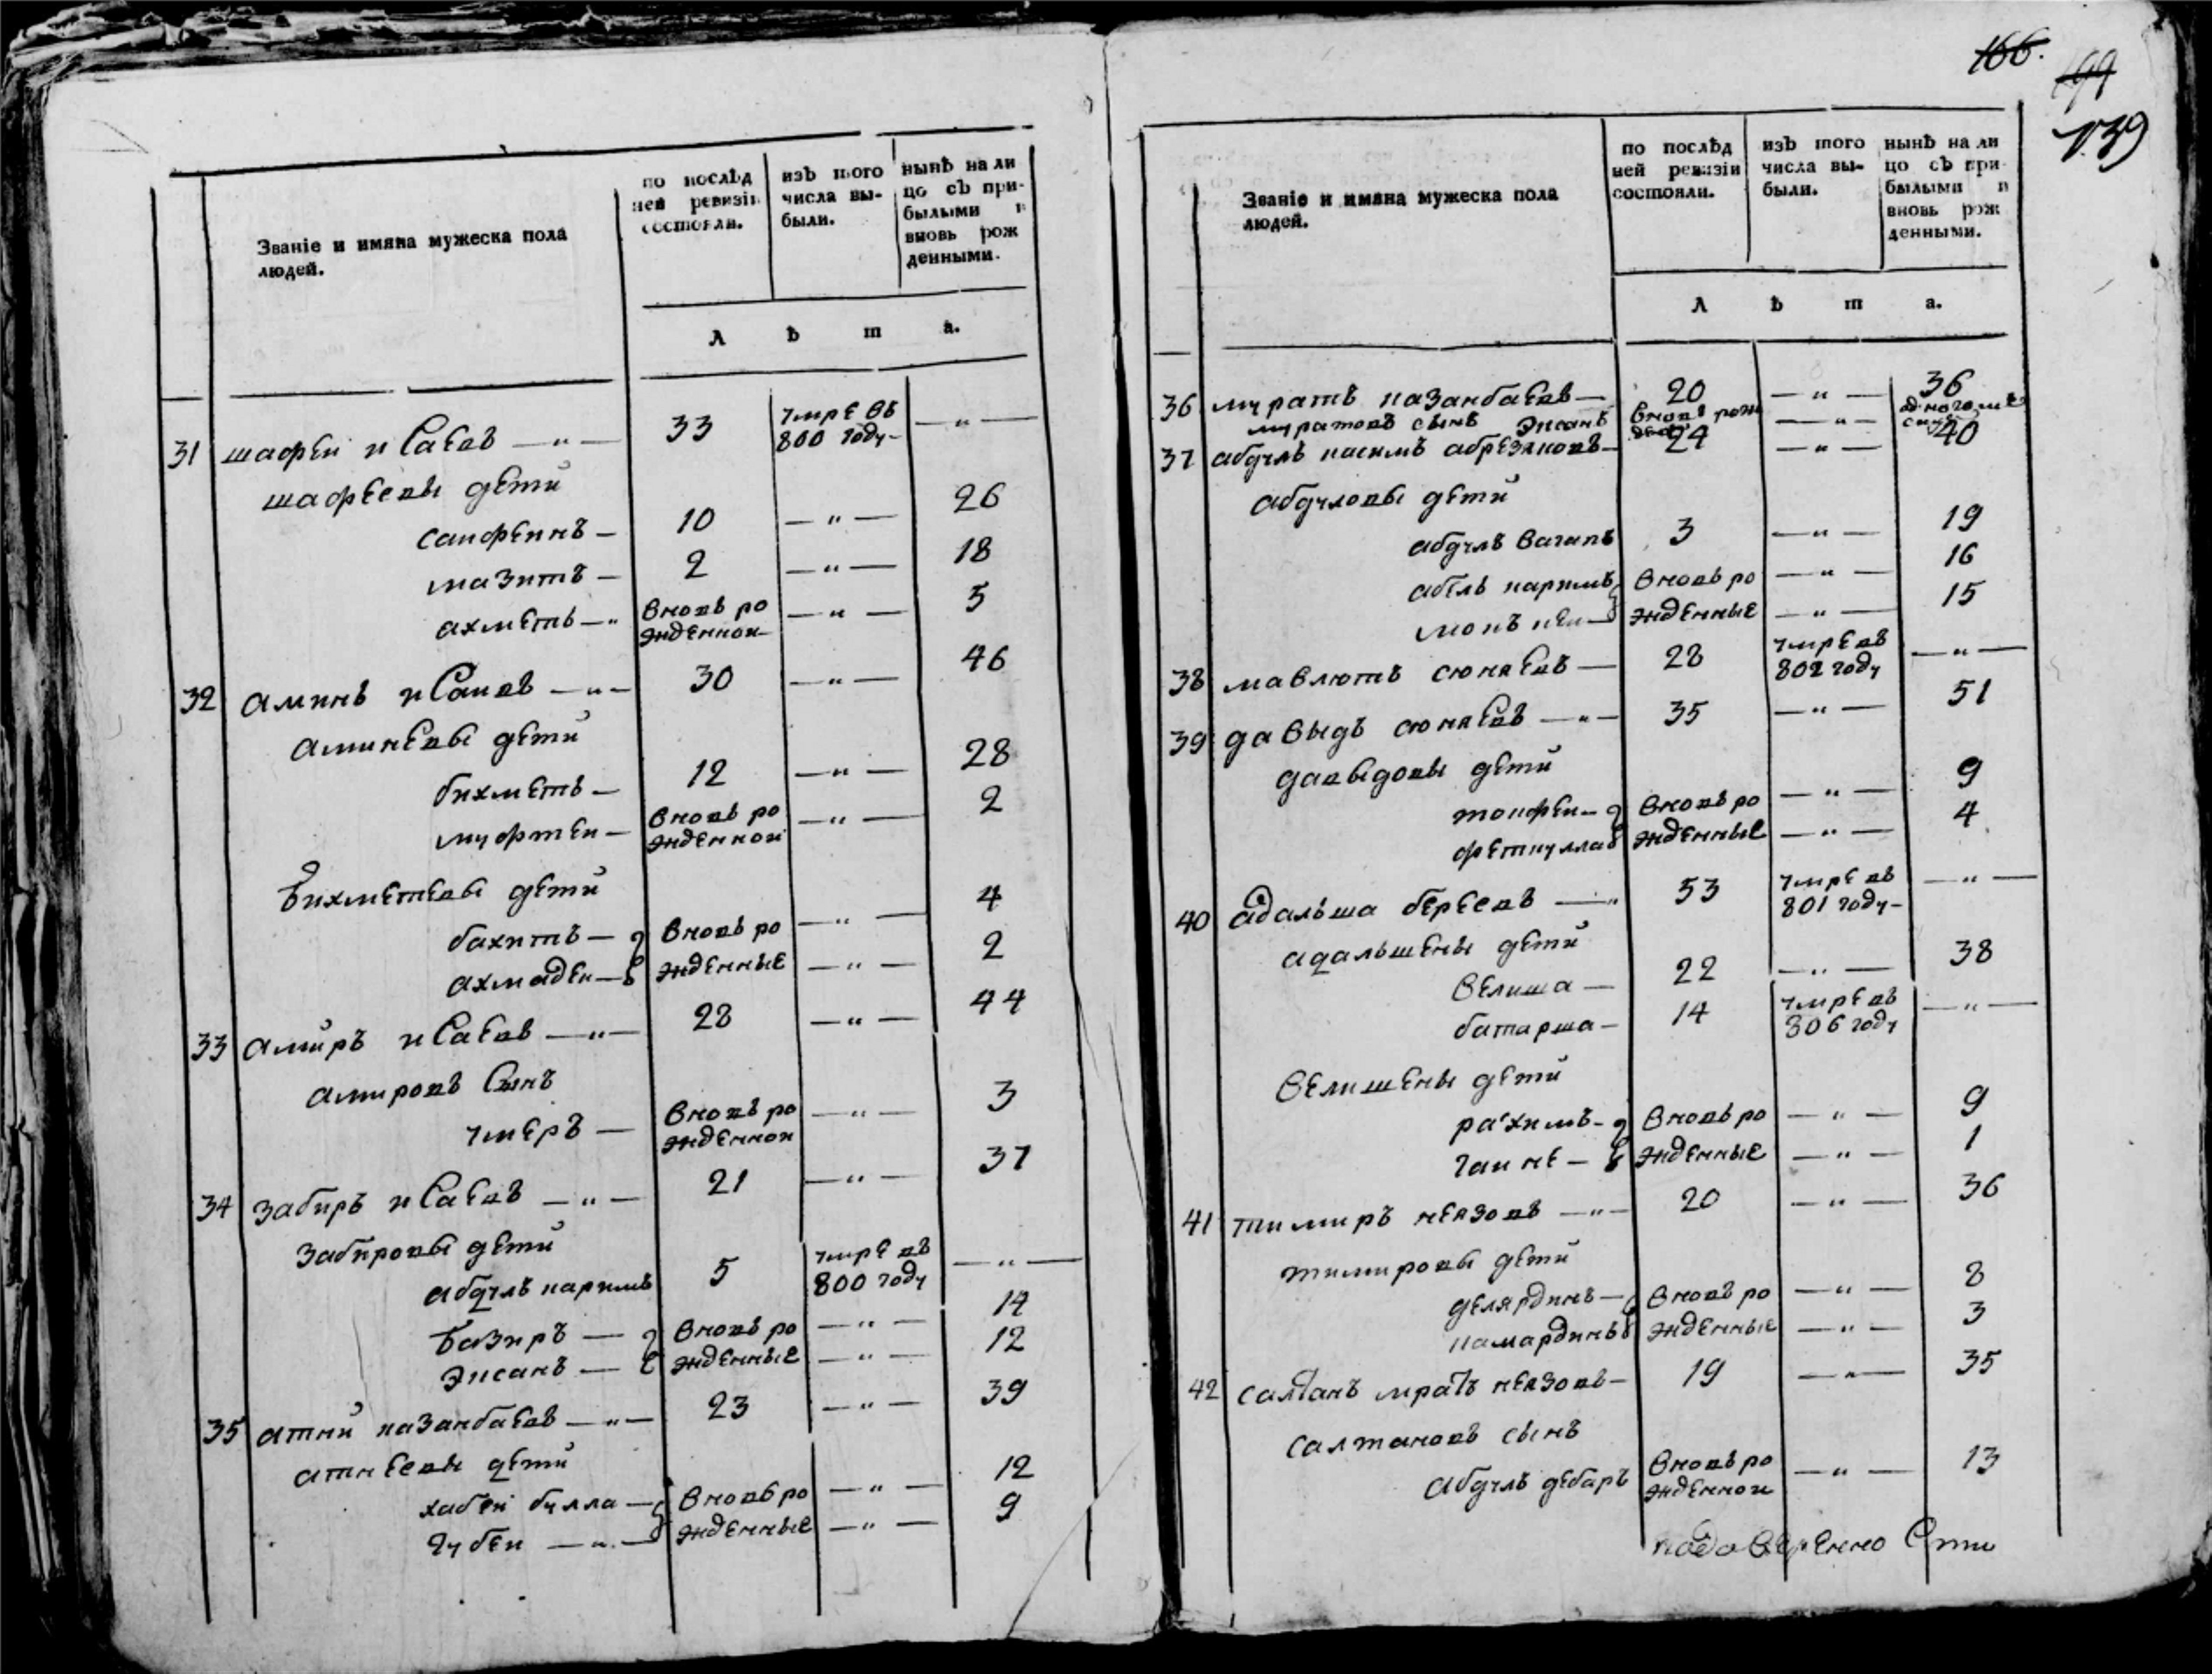 Званіе и имяна мужеска пола людей.
по послѣд
ней ревизіи
состояли.
изъ того
числа вы-
были.
нынѣ на ли
цо съ при-
былыми и
вновь рож
денными.
Л ѣ т а.
31 шафеи исаевъ — " — 33 умре въ 800 году — " —
шафеевы дети
саифеинъ — 10 — " — 26
мазитъ — 2 — " — 18
ахметь — " вновь рожденнои — " — 5
32 аминь исаивъ — " — 30 — " — 46
аминевы дети
бихметь — 12 — " — 28
муфтеи — вновь рожденнои — " — 2
бихметевы дети
бахитъ — вновь ро — " — 4
ахмадеи — жденные — " — 2
33 амиръ исаевъ — " — 28 — " — 44
амировъ сынъ
умеръ — вновь рожденнои — " — 3
34 забиръ исаевъ — " — 21 — " — 37
забировы дети
абдулъ каримъ 5 умре въ 800 году — " —
базиръ — вновь ро — " — 14
эисанъ — жденные — " — 12
35 атнии казанбаевъ — " — 23 — " — 39
атнеевы дети
хабеи булла — вновь ро — " — 12
губеи — " — жденные — " — 9
166.
199
139
Званіе и имяна мужеска пола
людей.
по послѣд
ней ревизіи
состояли.
изъ того
числа вы-
были.
нынѣ на ли
цо съ при-
былыми и
вновь рож
денными.
Л ѣ т а.
36 муратъ казанбаевъ — 20 — " — 36
муратовъ сынъ эисанъ вновь рожден — " —
37 абдулъ касимъ абрезяковъ — 24 — " — 40
абдуловы дети
абдулъ вагапъ 3 — " — 19
абель каримъ вновь ро — " — 16
жденные — " — 15
38 мавлютъ сюняевъ — 28 умре въ 802 году — " —
39 давыдъ сюняевъ — " — 35 — " — 51
давыдовы дети
тоифеи — вновь ро — " — 9
феткулла жденные — " — 4
40 адальша береевъ — " 53 умре въ 801 году — " —
адальшены дети
велиша — 22 — " — 38
батарша — 14 умре въ 806 году — " —
велишены дети
рахимъ — вновь ро — " — 9
гаине — жденные — " — 1
41 тимиръ неязовъ — " — 20 — " — 36
тимировы дети
делярдинъ — вновь ро — " — 8
камардинъ жденные — " — 3
42 салтанъ мратъ неязовъ — 19 — " — 35
салтановъ сынъ
абдулъ дебаръ вновь рожденнои — " — 13